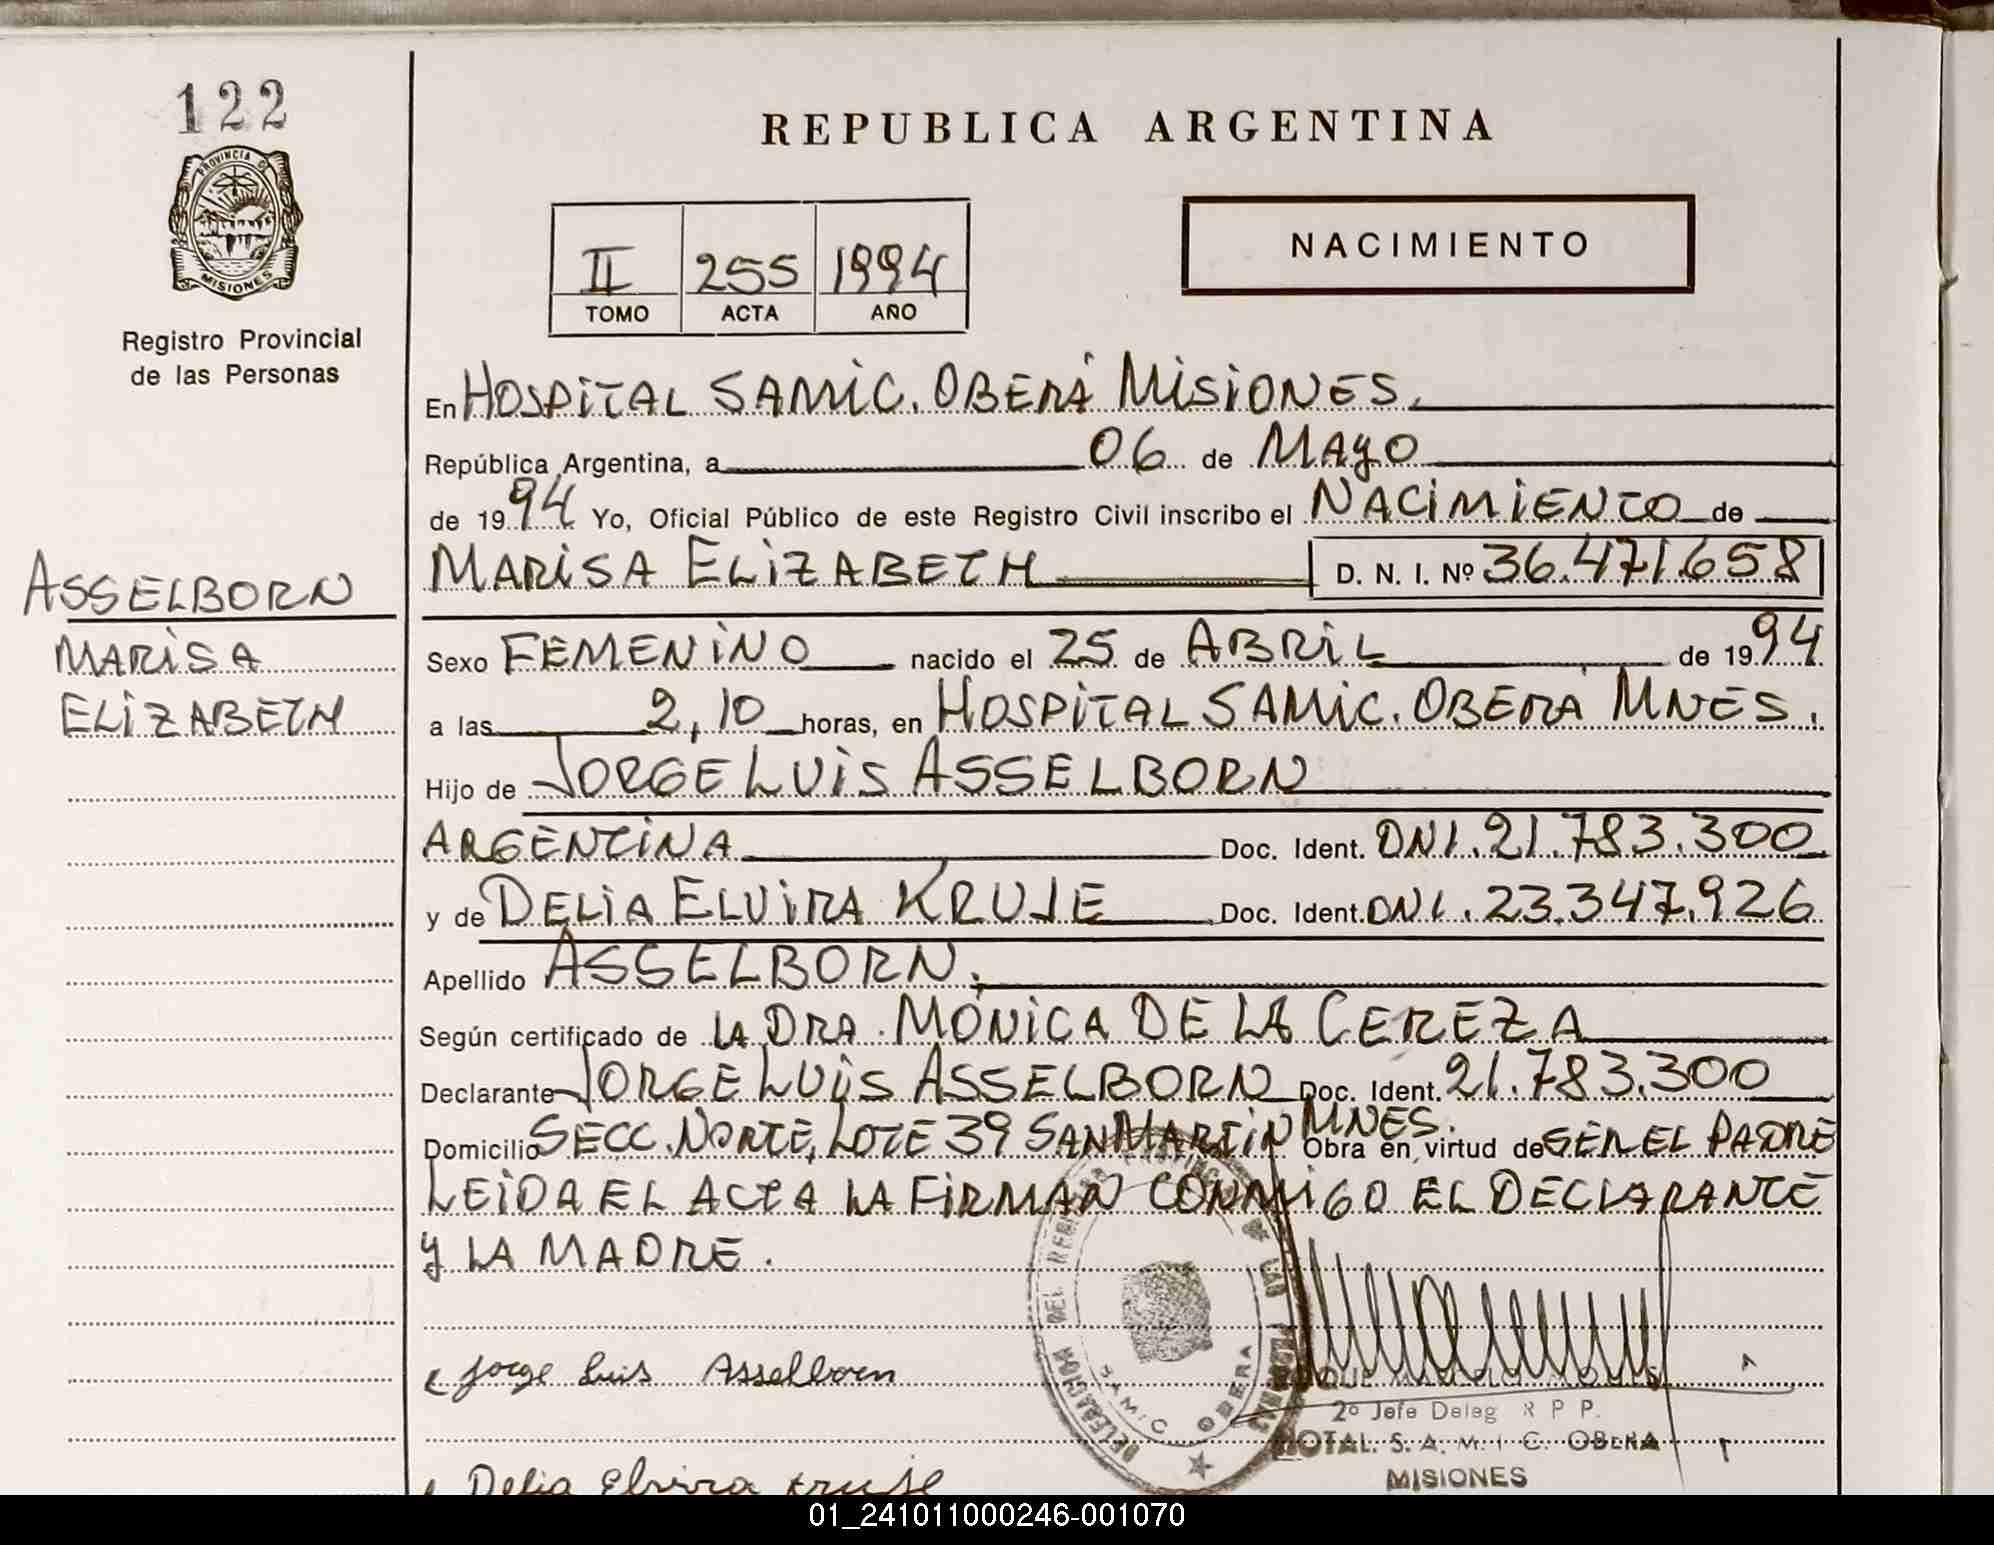 122
PROVINCIA D
MISIONES
Registro Provincial
de las Personas
REPUBLICA ARGENTINA
II 255 1994
TOMO ACTA AÑO
NACIMIENTO
En HOSPITAL SAMIC. OBERÁ MISIONES.
República Argentina, a 06 de MAYO
de 1994 Yo, Oficial Público de este Registro Civil inscribo el NACIMIENTO de
MARISA ELIZABETH D. N. I. Nº 36.471.658
ASSELBORN
MARISA
ELIZABETH
Sexo FEMENINO nacido el 25 de ABRIL de 1994
a las 2,10 horas, en HOSPITAL SAMIC. OBERÁ MNES.
Hijo de JORGE LUIS ASSELBORN
ARGENTINA Doc. Ident. DNI. 21.783.300
y de DELIA ELVIRA KRUSE Doc. Ident. DNI. 23.347.926
Apellido ASSELBORN.
Según certificado de LA DRA. MÓNICA DE LA CEREZA
Declarante JORGE LUIS ASSELBORN Doc. Ident. 21.783.300
Domicilio SECC. NORTE, LOTE 39 SAN MARTIN MNES. Obra en virtud de SER EL PADRE
LEIDA EL ACTA LA FIRMAN CONMIGO EL DECLARANTE
Y LA MADRE.
Jorge Luis Asselborn
Delia Elvira Kruse
DELEGACION DEL REGISTRO PROVINCIAL DE LAS PERSONAS
SAMIC OBERA
2º Jefe Deleg R P P.
HOTAL. S. A. M. I C. OBERA
MISIONES
01_241011000246-001070